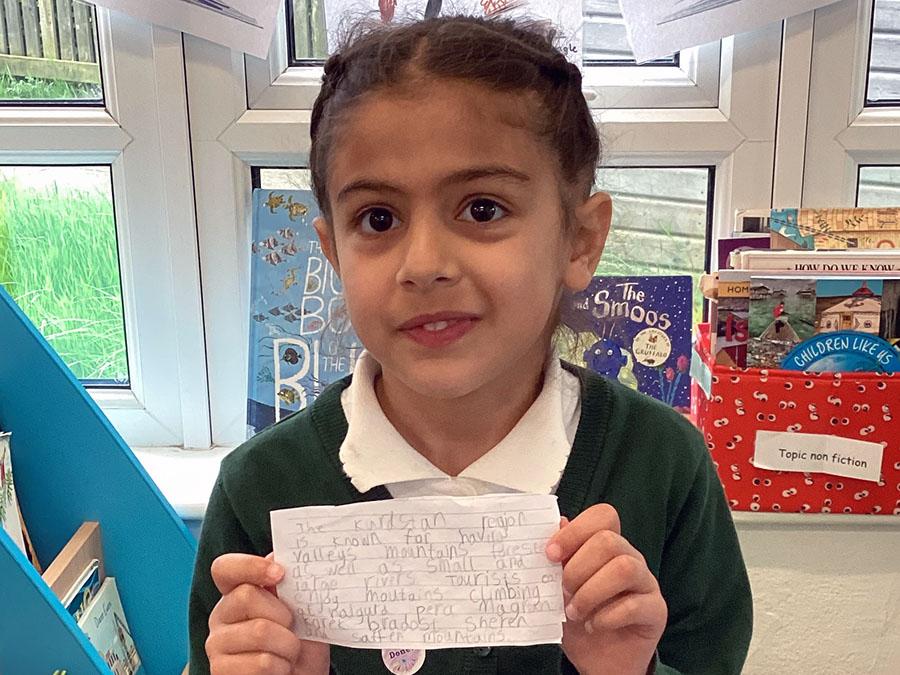 THE
BIG
BOOK
OF THE
BLUE
The
Smoos
THE
GRUFFALO
HOW DO WE KNOW
HOM
CHILDREN LIKE US
Topic non fiction
The kurdstan reajon
is known for having
valleys mountains forests
as well as small and
large rivers Tourists can
enjoy moutains climbing
at halgurd pera Magron
korek bradost sheren
and saffen mountains.